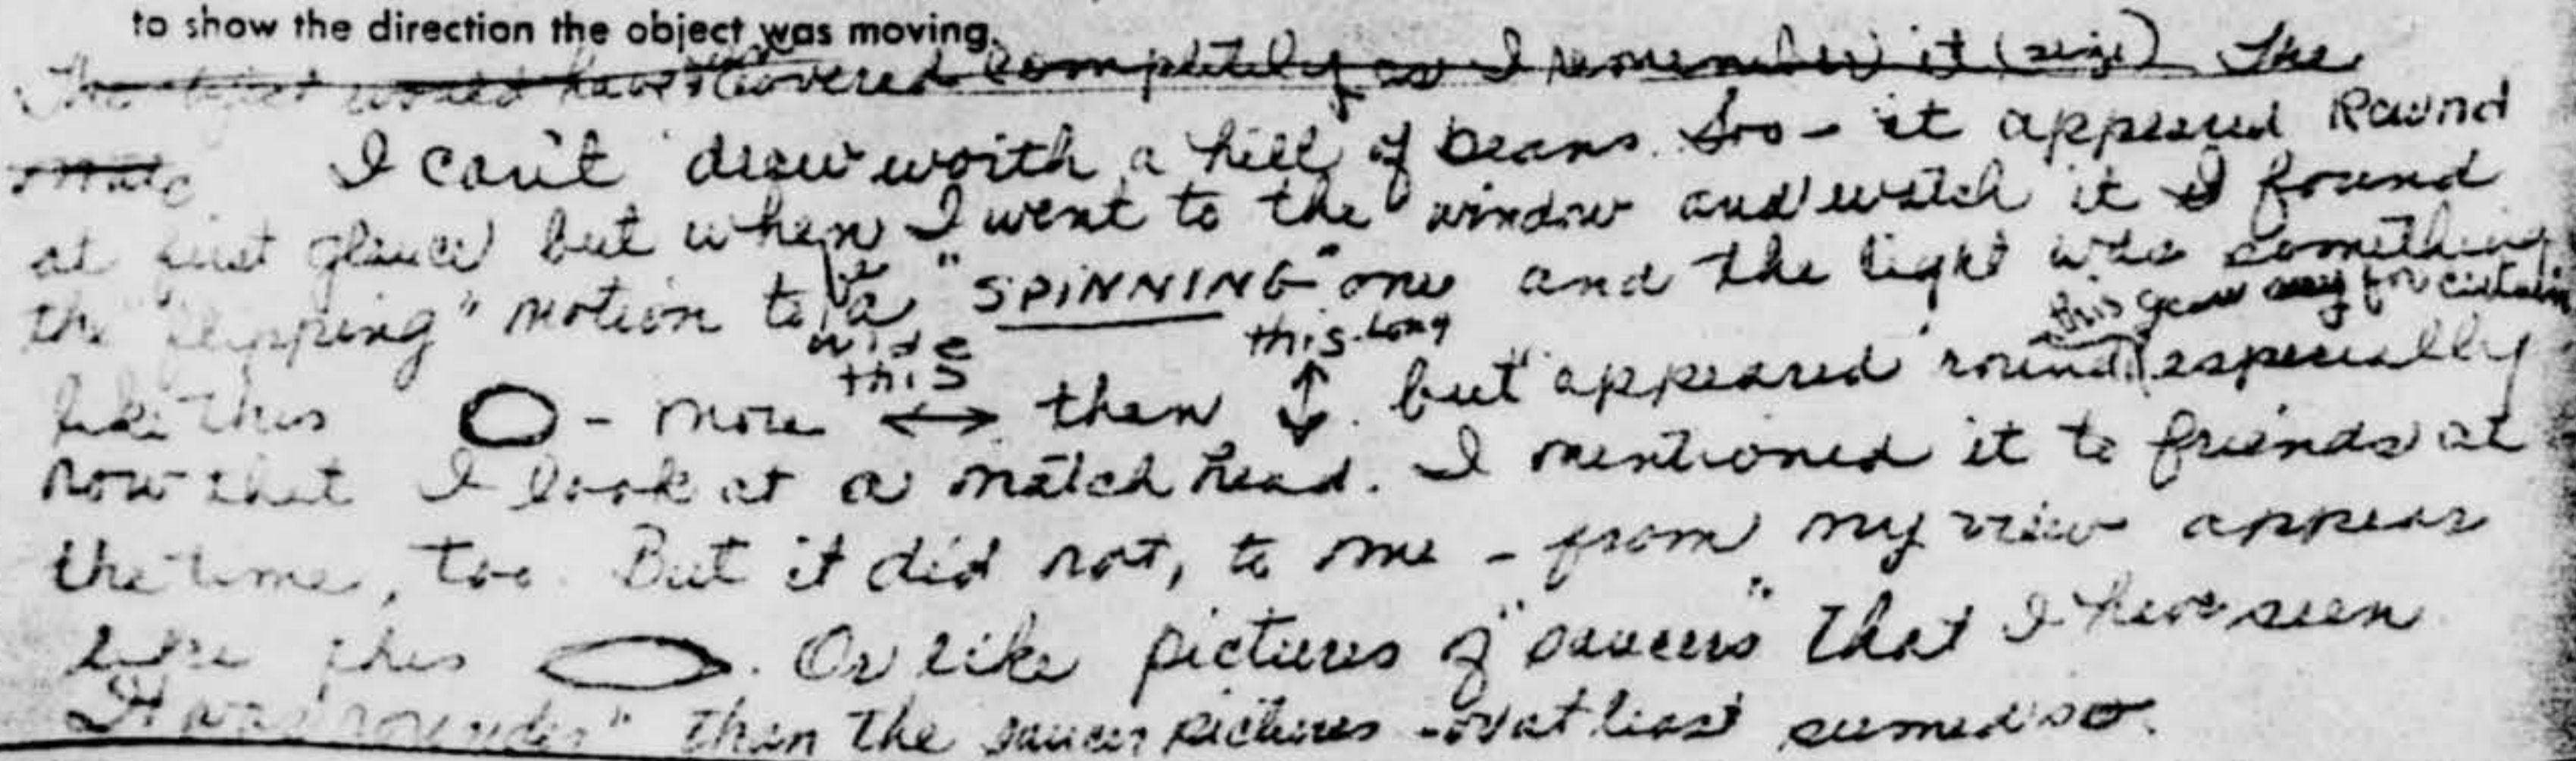 to show the direction the object was moving.
The object would have covered completely as I remember it (size) The
I can't draw worth a hill of beans. Soo - it appeared Round
at first glance but when I went to the window and watch it I found
the "flipping" motion to be a "SPINNING" one and the light was something
wide this
this long
this year for certain
like this - more ↔ then ↕. but appeared round especially
now that I look at a match head. I mentioned it to friends at
the time, too. But it did not, to me - from my view appear
like this . Or like pictures of "saucers" that I have seen
It was "rounder" than the saucer pictures - or at least seemed so.